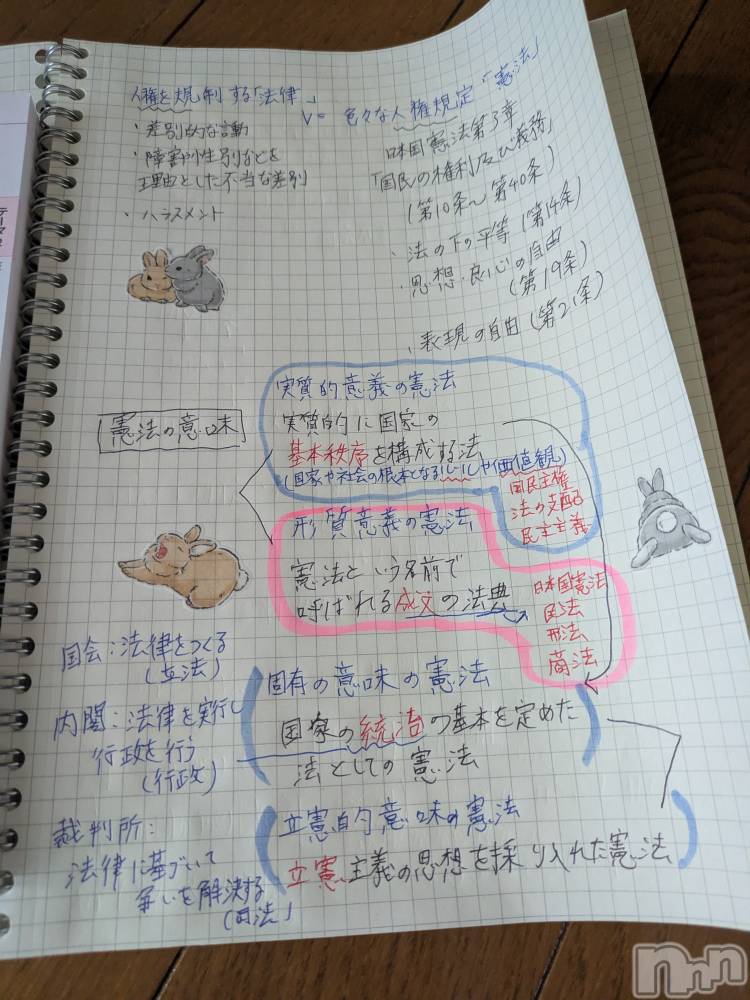 人権を規制する「法律」
・差別的な言動
・障害や性別などを
理由とした不当な差別
・ハラスメント
V= 色々な人権規定「憲法」
日本国憲法第3章
「国民の権利及び義務」
(第10条〜第40条)
・法の下の平等(第14条)
・思想・良心の自由
(第19条)
・表現の自由(第21条)
憲法の意味
実質的意義の憲法
実質的に国家の
基本秩序を構成する法
(国家や社会の根本となるルールや価値観)
国民主権
法の支配
民主主義
形質意義の憲法
憲法という名前で
呼ばれる成文の法典
日本国憲法
民法
刑法
商法
固有の意味の憲法
国家の統治の基本を定めた
法としての憲法
立憲的意味の憲法
立憲主義の思想を採り入れた憲法
国会:法律をつくる
(立法)
内閣:法律を実行し
行政を行う
(行政)
裁判所:
法律に基づいて
争いを解決する
(司法」
テーマ
nnn